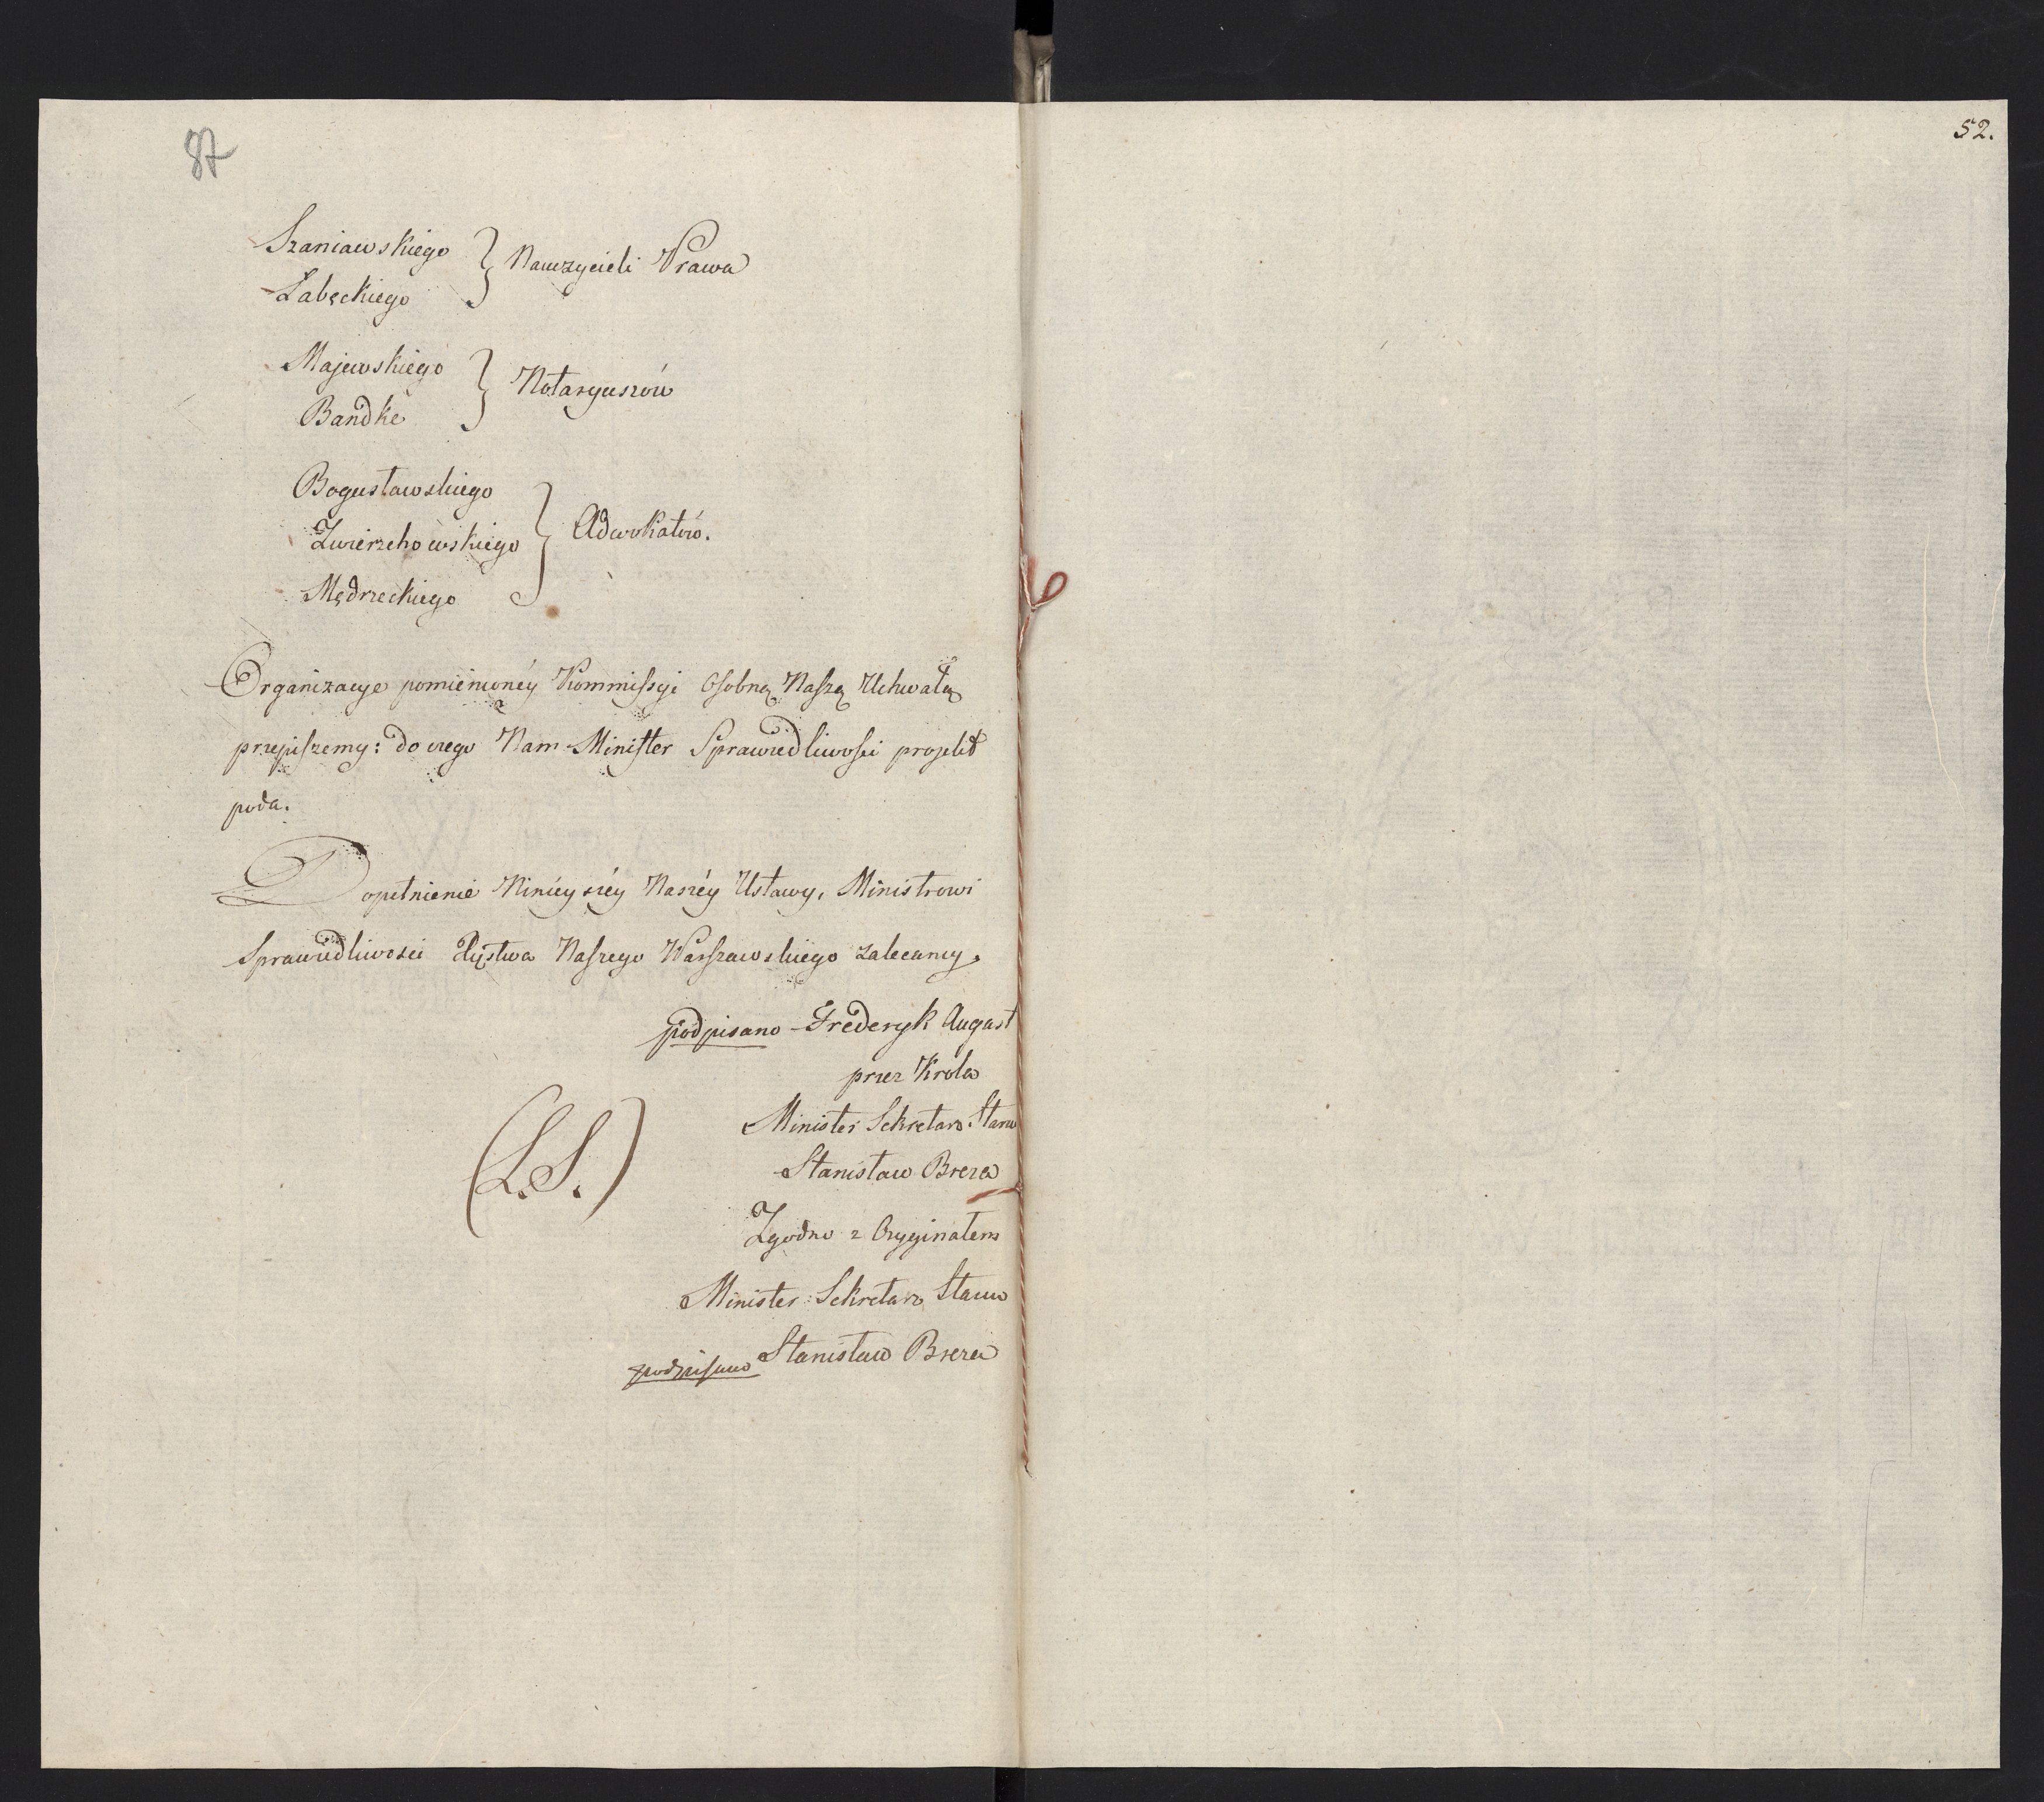 87
52.
Szaniawskiego
Łabęckiego
} Nauczycieli Prawa
Majewskiego
Bandke
} Notaryuszów
Bogusławskiego
Zwierzchowskiego
Mędrzeckiego
} Adwokatów.
Organizacye pomienionéy Kommissyi Osobną Naszą Uchwałą
przepiszemy: do czego Nam Minister Sprawiedliwości projekt
poda.
Dopełnienie Ninieyszéy Naszéy Ustawy, Ministrowi
Sprawiedliwości Xięstwa Naszego Warszawskiego zalecamy.
podpisano Frederyk August
przez Króla
Minister Sekretarz Stanu
(L.S.)
Stanisław Breza
Zgodno z Oryginałem
Minister Sekretarz Stanu
podpisano Stanisław Breza